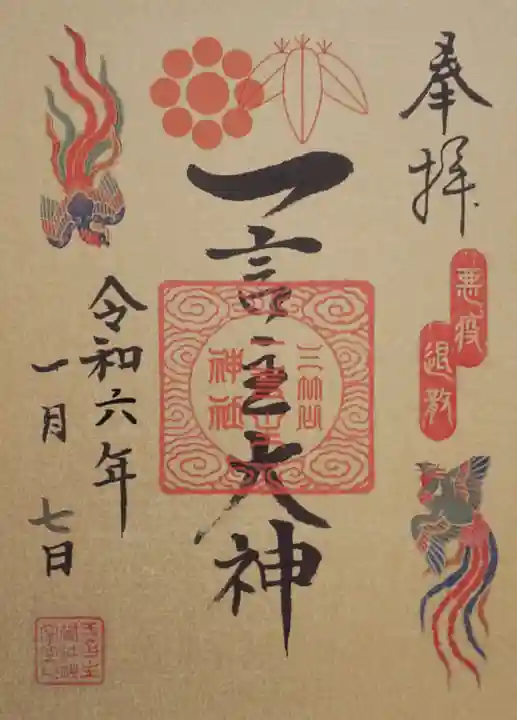 奉拝
悪疫
退散
一言主大神
三竹山
一言主
神社
令和六年
一月七日